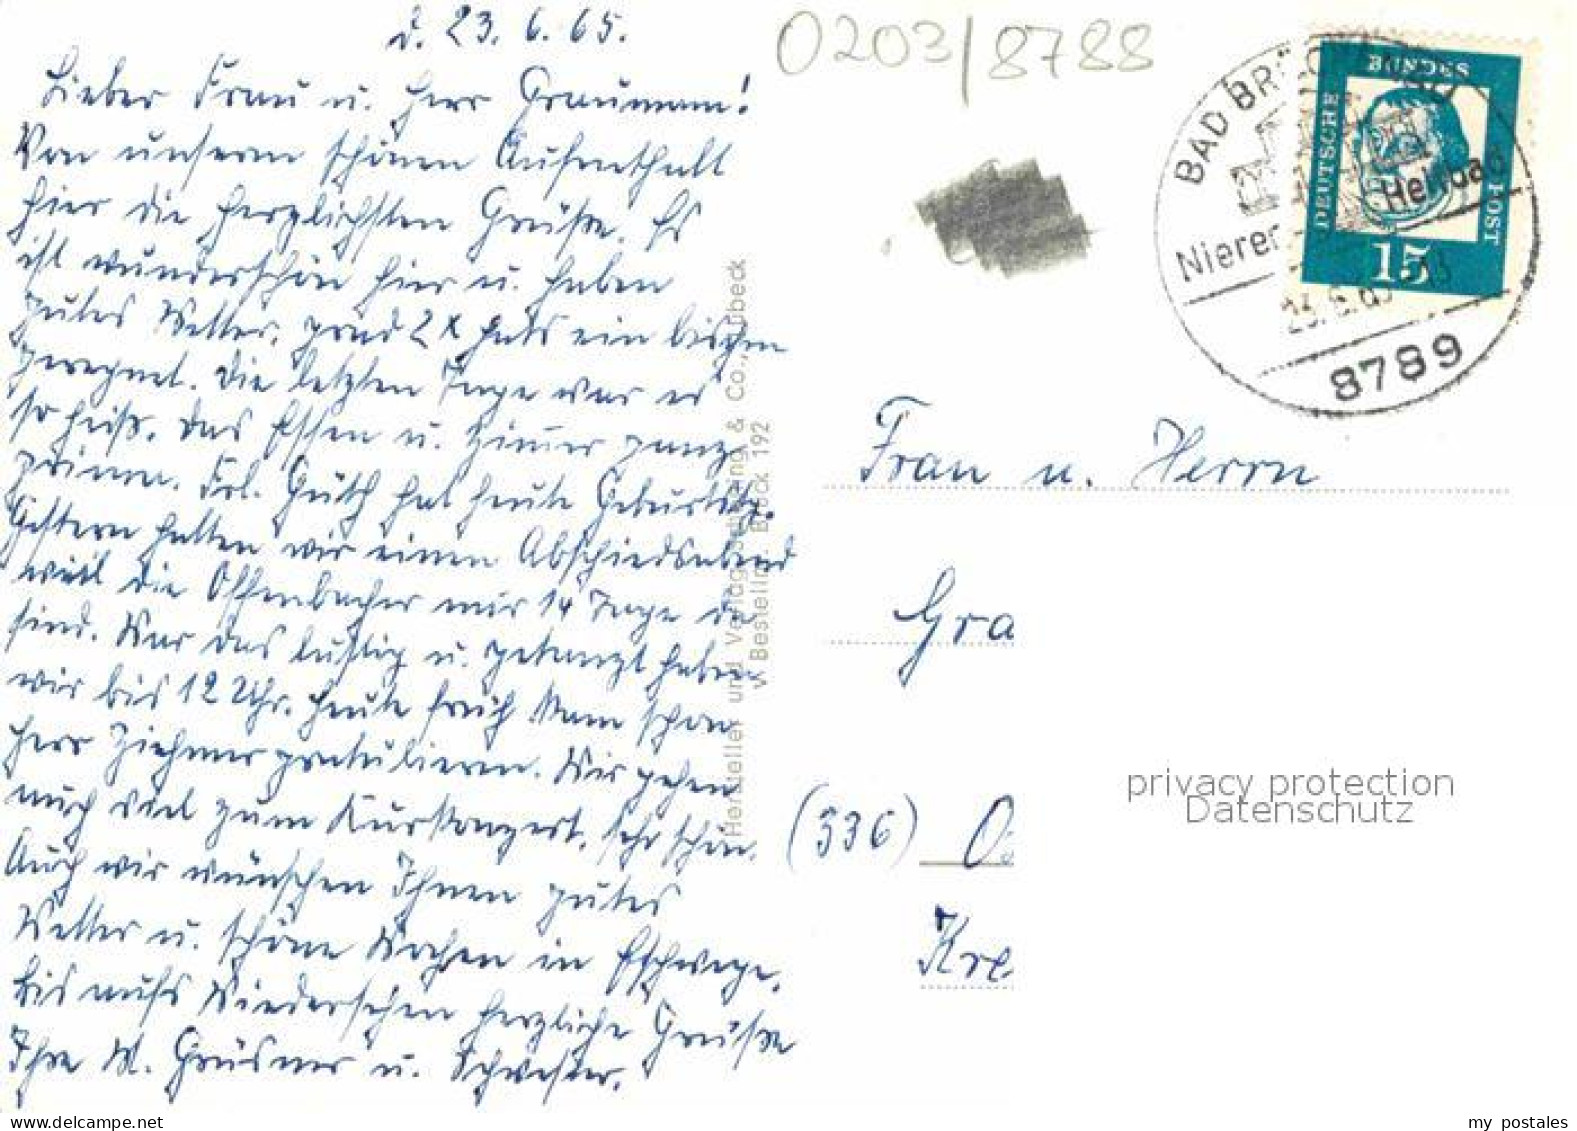 d. 23. 6. 65.
0203/8788
Lieber Frau u. Herr Graumann!
Von unserm schönen Aufenthalt
hier die herzlichsten Grüße. Es
ist wunderschön hier u. haben
gutes Wetter, grad 2x hats ein bischen
geregnet. Die letzten Tage war es
so heiß. Das Essen u. Zimmer ganz
prima. Frl. Güth hat heute Geburtstg.
Gestern hatten wir einen Abschiedsabend
weil die Offenbacher nur 14 Tage da
sind. War das lustig u. getanzt haben
wir bis 12 Uhr. Heute früh kam schon
Herr Ziehmer gratulieren. Wir gehen
auch viel zum Kurkonzert. Sehr schön.
Auch wir wünschen Ihnen gutes
Wetter u. schöne Wochen in Eschwege.
Bis aufs Wiedersehen herzliche Grüße
Ihre M. Grüsner u. Schwester.
Hersteller und Verlag & Co., Lübeck
Bestellnr. Brück 192
BAD BRÜCKENAU
Nieren Heilbad
23.6.65
8789
DEUTSCHE BUNDESPOST
15
Frau u. Herrn
Gra
(336) O
Kre
privacy protection
Datenschutz
www.delcampe.net
my postales